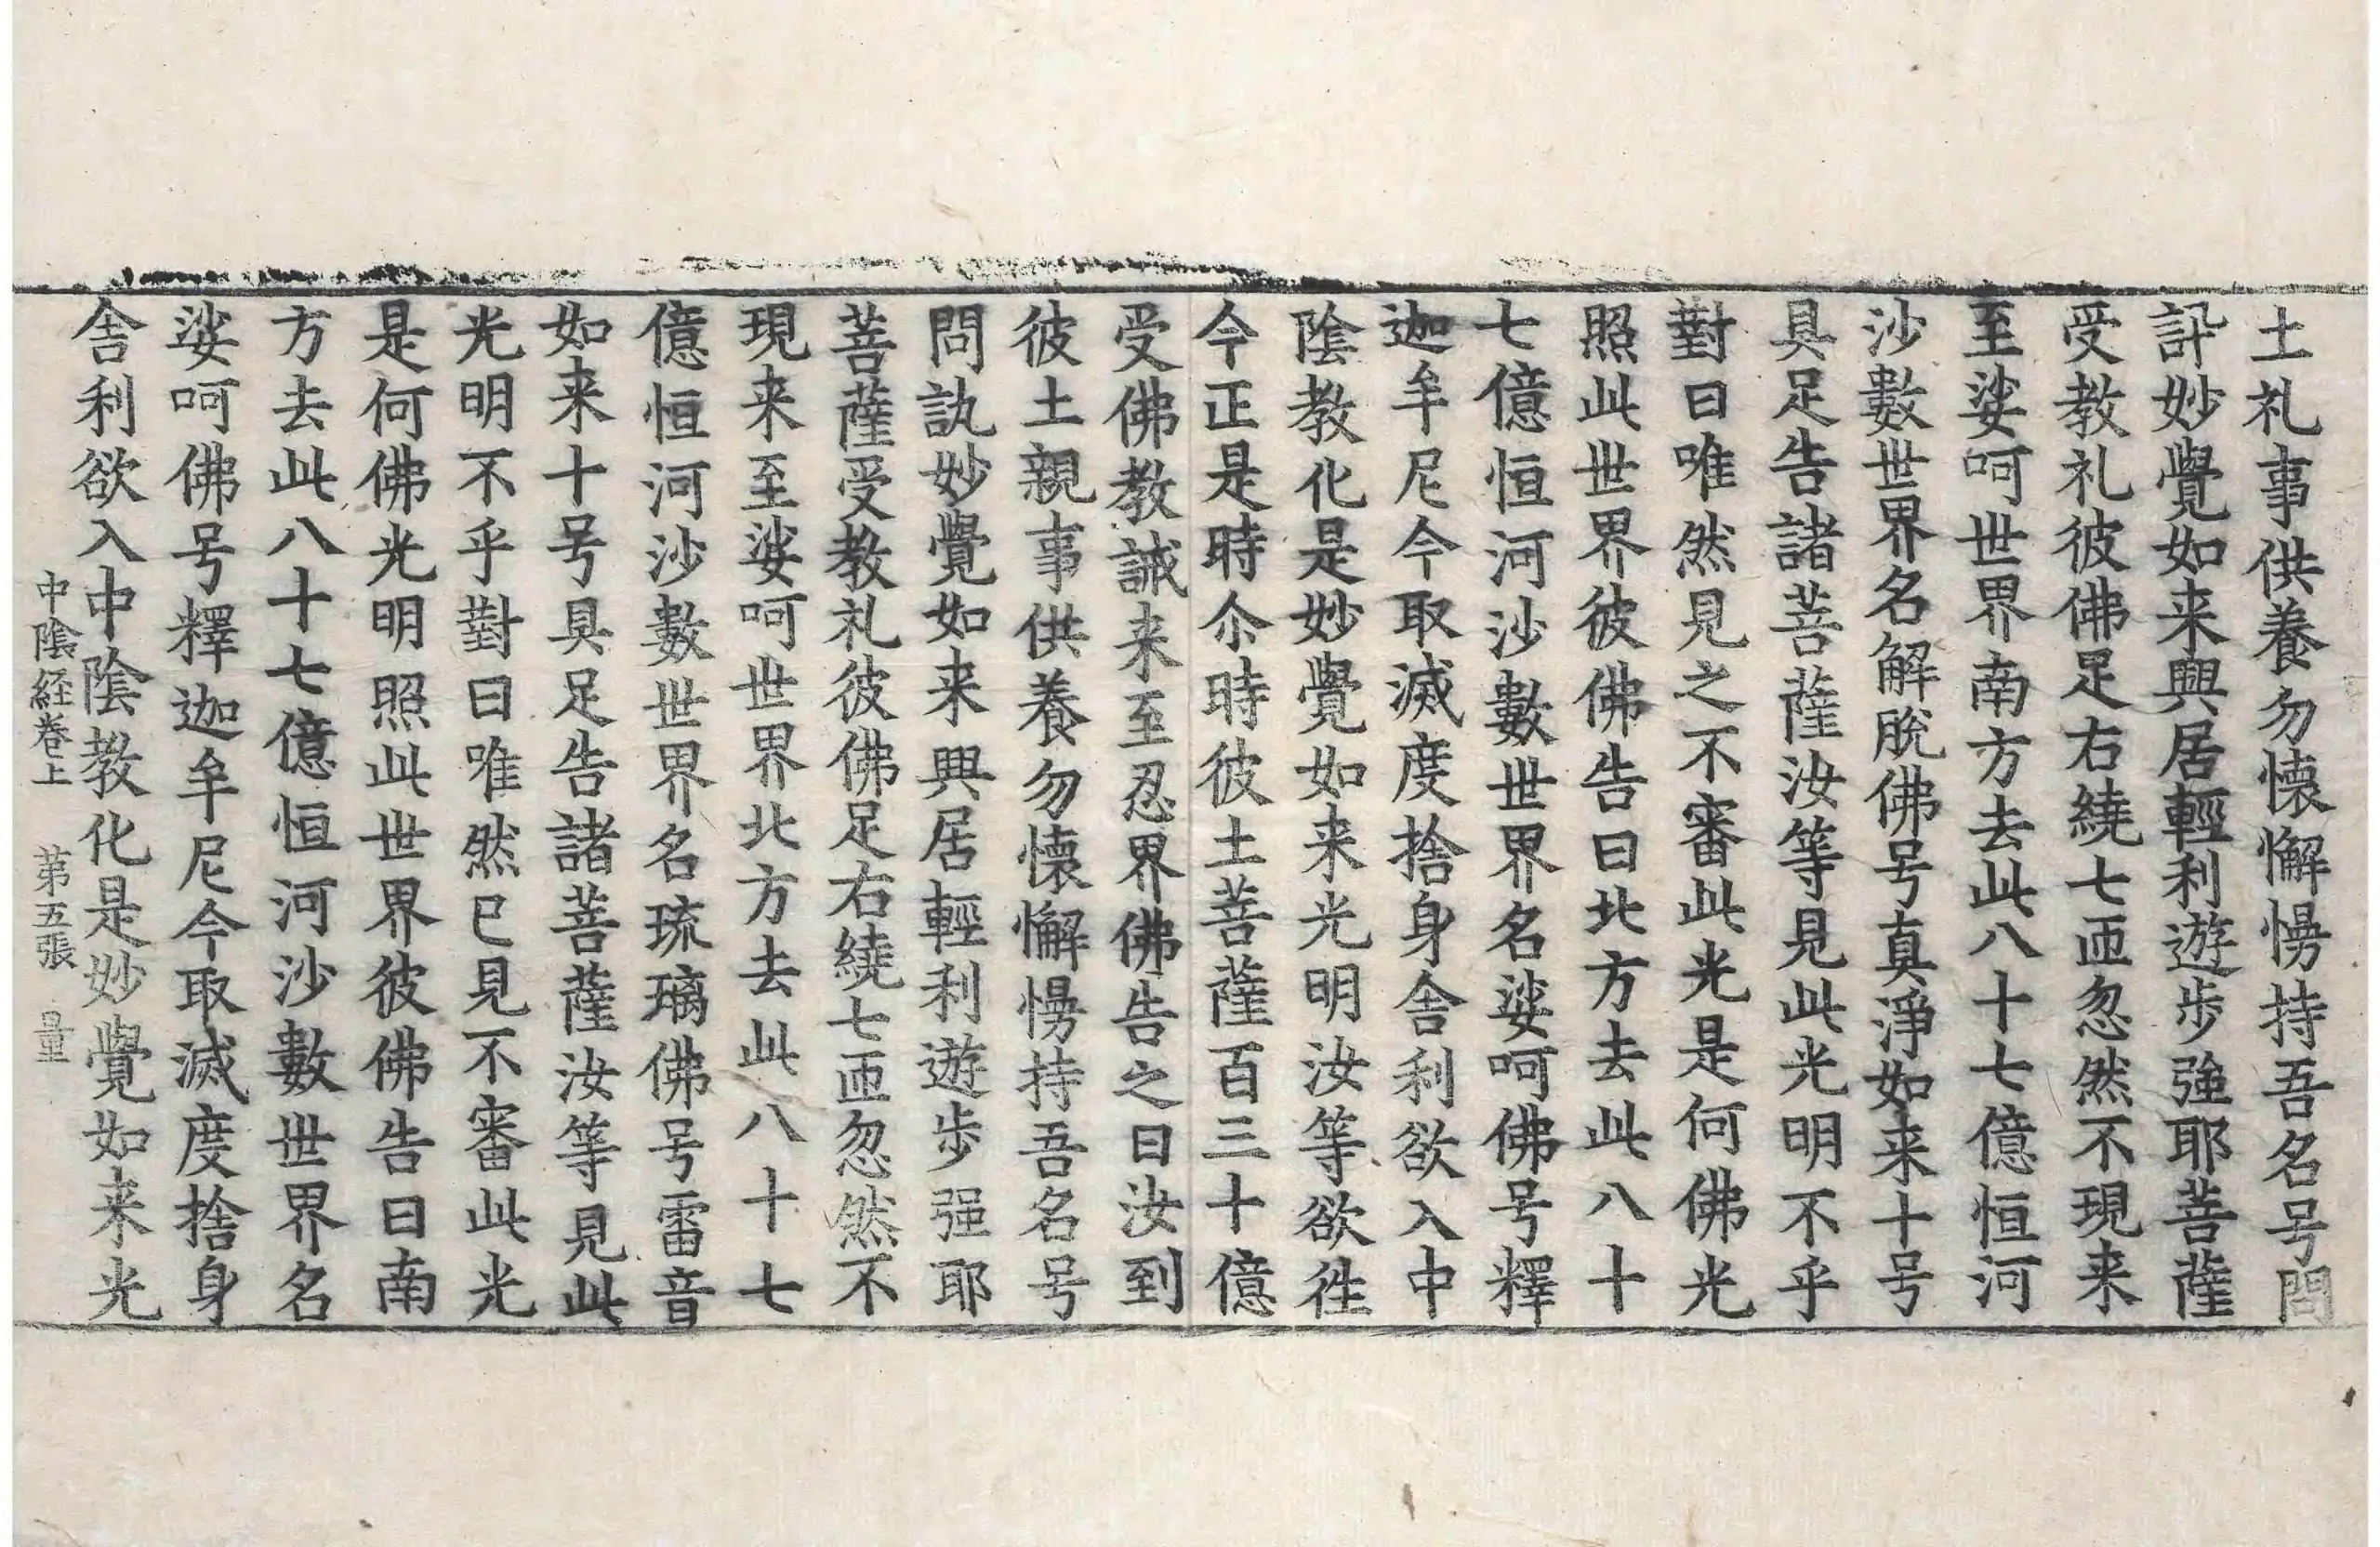 土礼事供養勿懐懈慢持吾名号問
訊妙覺如来興居輕利遊歩強耶菩薩
受教礼彼佛足右繞七匝忽然不現来
至娑呵世界南方去此八十七億恒河
沙數世界名解脫佛号真淨如来十号
具足告諸菩薩汝等見此光明不乎
對曰唯然見之不審此光是何佛光
照此世界彼佛告曰北方去此八十
七億恒河沙數世界名娑呵佛号釋
迦牟尼今取滅度捨身舍利欲入中
陰教化是妙覺如来光明汝等欲徃
今正是時尒時彼土菩薩百三十億
受佛教誡来至忍界佛告之曰汝到
彼土親事供養勿懐懈慢持吾名号
問訊妙覺如来興居輕利遊歩强耶
菩薩受教礼彼佛足右繞七匝忽然不
現来至娑呵世界北方去此八十七
億恒河沙數世界名琉璃佛号雷音
如来十号具足告諸菩薩汝等見此
光明不乎對曰唯然已見不審此光
是何佛光明照此世界彼佛告曰南
方去此八十七億恒河沙數世界名
娑呵佛号釋迦牟尼今取滅度捨身
舎利欲入中陰教化是妙覺如来光
中陰経卷上 苐五張 量